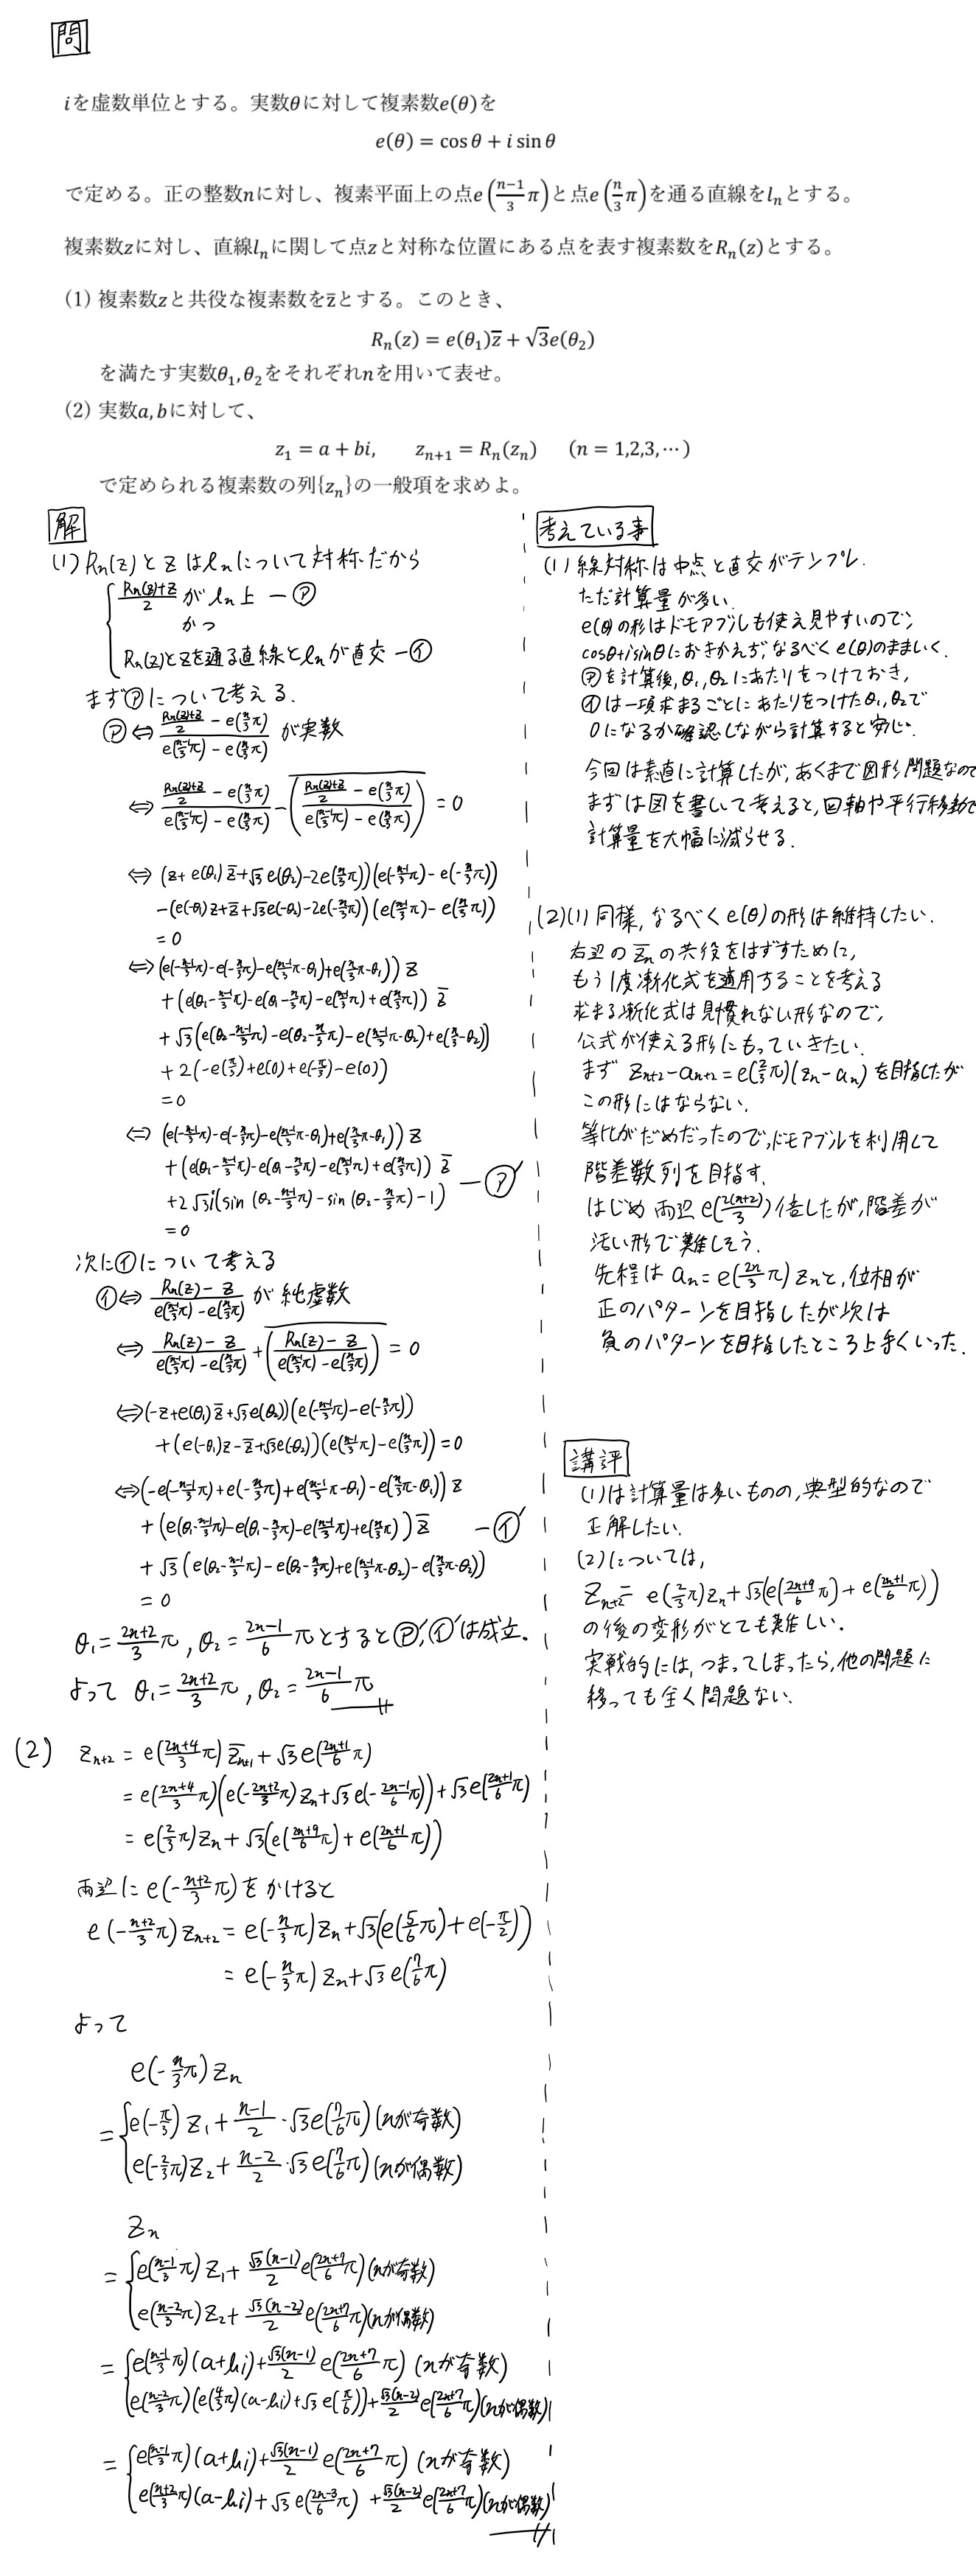 問
iを虚数単位とする。実数θに対して複素数e(θ)を
e(θ) = cos θ + i sin θ
で定める。正の整数nに対し、複素平面上の点e((n−1)/3 π)と点e(n/3 π)を通る直線をl_nとする。
複素数zに対し、直線l_nに関して点zと対称な位置にある点を表す複素数をR_n(z)とする。
(1) 複素数zと共役な複素数をz̄とする。このとき、
R_n(z) = e(θ₁)z̄ + √3e(θ₂)
を満たす実数θ₁,θ₂をそれぞれnを用いて表せ。
(2) 実数a,bに対して、
z₁ = a + bi, z_{n+1} = R_n(z_n) (n = 1,2,3,⋯)
で定められる複素数の列{z_n}の一般項を求めよ。
解
(1) R_n(z)とzはl_nについて対称だから
(R_n(z)+z)/2 がl_n上 ー㋐
かつ
R_n(z)とzを通る直線とl_nが直交 ー㋑
まず㋐について考える.
㋐⇔ ((R_n(z)+z)/2 − e(n/3 π))/(e((n−1)/3 π) − e(n/3 π)) が実数
⇔ ((R_n(z)+z)/2 − e(n/3 π))/(e((n−1)/3 π) − e(n/3 π)) − \overline{(((R_n(z)+z)/2 − e(n/3 π))/(e((n−1)/3 π) − e(n/3 π)))} = 0
⇔ (z + e(θ₁)z̄ + √3e(θ₂) − 2e(n/3 π))(e(−(n−1)/3 π) − e(−n/3 π))
−(e(−θ₁)z + z̄ + √3e(−θ₂) − 2e(−n/3 π))(e((n−1)/3 π) − e(n/3 π))
= 0
⇔ (e(−(n−1)/3 π) − e(−n/3 π) − e((n−1)/3 π − θ₁) + e(n/3 π − θ₁))z
+ (e(θ₁ − (n−1)/3 π) − e(θ₁ − n/3 π) − e((n−1)/3 π) + e(n/3 π))z̄
+ √3(e(θ₂ − (n−1)/3 π) − e(θ₂ − n/3 π) − e((n−1)/3 π − θ₂) + e(n/3 − θ₂))
+ 2(−e(π/3) + e(0) + e(−π/3) − e(0))
= 0
⇔ (e(−(n−1)/3 π) − e(−n/3 π) − e((n−1)/3 π − θ₁) + e(n/3 π − θ₁))z
+ (e(θ₁ − (n−1)/3 π) − e(θ₁ − n/3 π) − e((n−1)/3 π) + e(n/3 π))z̄
+ 2√3i(sin(θ₂ − (n−1)/3 π) − sin(θ₂ − n/3 π) − 1) ー㋐′
= 0
次に㋑について考える
㋑⇔ (R_n(z) − z)/(e((n−1)/3 π) − e(n/3 π)) が純虚数
⇔ (R_n(z) − z)/(e((n−1)/3 π) − e(n/3 π)) + \overline{((R_n(z) − z)/(e((n−1)/3 π) − e(n/3 π)))} = 0
⇔ (−z + e(θ₁)z̄ + √3e(θ₂))(e(−(n−1)/3 π) − e(−n/3 π))
+ (e(−θ₁)z − z̄ + √3e(−θ₂))(e((n−1)/3 π) − e(n/3 π)) = 0
⇔ (−e(−(n−1)/3 π) + e(−n/3 π) + e((n−1)/3 π − θ₁) − e(n/3 π − θ₁))z
+ (e(θ₁ − (n−1)/3 π) − e(θ₁ − n/3 π) − e((n−1)/3 π) + e(n/3 π))z̄ ー㋑′
+ √3(e(θ₂ − (n−1)/3 π) − e(θ₂ − n/3 π) + e((n−1)/3 π − θ₂) − e(n/3 π − θ₂))
= 0
θ₁ = (2n+2)/3 π, θ₂ = (2n−1)/6 π とすると㋐′,㋑′は成立.
よって θ₁ = (2n+2)/3 π, θ₂ = (2n−1)/6 π
(2) z_{n+2} = e((2n+4)/3 π) z̄_{n+1} + √3e((2n+1)/6 π)
= e((2n+4)/3 π)(e(−(2n+2)/3 π)z_n + √3e(−(2n−1)/6 π)) + √3e((2n+1)/6 π)
= e(2/3 π)z_n + √3(e((2n+9)/6 π) + e((2n+1)/6 π))
両辺に e(−(n+2)/3 π)をかけると
e(−(n+2)/3 π)z_{n+2} = e(−n/3 π)z_n + √3(e(5/6 π) + e(−π/2))
= e(−n/3 π)z_n + √3e(7/6 π)
よって
e(−n/3 π)z_n
= { e(−π/3)z₁ + (n−1)/2・√3e(7/6 π) (nが奇数)
e(−2/3 π)z₂ + (n−2)/2・√3e(7/6 π) (nが偶数)
z_n
= { e((n−1)/3 π)z₁ + √3(n−1)/2 e((2n+7)/6 π) (nが奇数)
e((n−2)/3 π)z₂ + √3(n−2)/2 e((2n+7)/6 π) (nが偶数)
= { e((n−1)/3 π)(a+bi) + √3(n−1)/2 e((2n+7)/6 π) (nが奇数)
e((n−2)/3 π)(e(4/3 π)(a−bi) + √3e(π/6)) + √3(n−2)/2 e((2n+7)/6 π) (nが偶数)
= { e((n−1)/3 π)(a+bi) + √3(n−1)/2 e((2n+7)/6 π) (nが奇数)
e((n+2)/3 π)(a−bi) + √3e((2n−3)/6 π) + √3(n−2)/2 e((2n+7)/6 π) (nが偶数)
考えている事
(1) 線対称は中点と直交がテンプレ.
ただ計算量が多い.
e(θ)の形はドモアブルも使え見やすいので,
cosθ+isinθにおきかえず,なるべくe(θ)のままいく.
㋐を計算後,θ₁,θ₂にあたりをつけておき,
㋑は一項求まるごとにあたりをつけたθ₁,θ₂で
0になるか確認しながら計算すると安心.
今回は素直に計算したが,あくまで図形問題なので
まずは図を書いて考えると,回転や平行移動で
計算量を大幅に減らせる.
(2)(1)同様,なるべくe(θ)の形は維持したい.
右辺のz̄_nの共役をはずすために,
もう1度漸化式を適用することを考える
求まる漸化式は見慣れない形なので,
公式が使える形にもっていきたい.
まず z_{n+2}−a_{n+2}=e(2/3 π)(z_n−a_n)を目指したが
この形にはならない.
等比がだめだったので,ドモアブルを利用して
階差数列を目指す.
はじめ両辺e(2(n+2)/3)倍したが,階差が
汚い形で難しそう.
先程は a_n=e(2n/3 π)z_nと,位相が
正のパターンを目指したが次は
負のパターンを目指したところ上手くいった.
講評
(1)は計算量は多いものの,典型的なので
正解したい.
(2)については,
z_{n+2}= e(2/3 π)z_n+√3(e((2n+9)/6 π)+e((2n+1)/6 π))
の後の変形がとても難しい.
実戦的には,つまってしまったら,他の問題に
移っても全く問題ない.